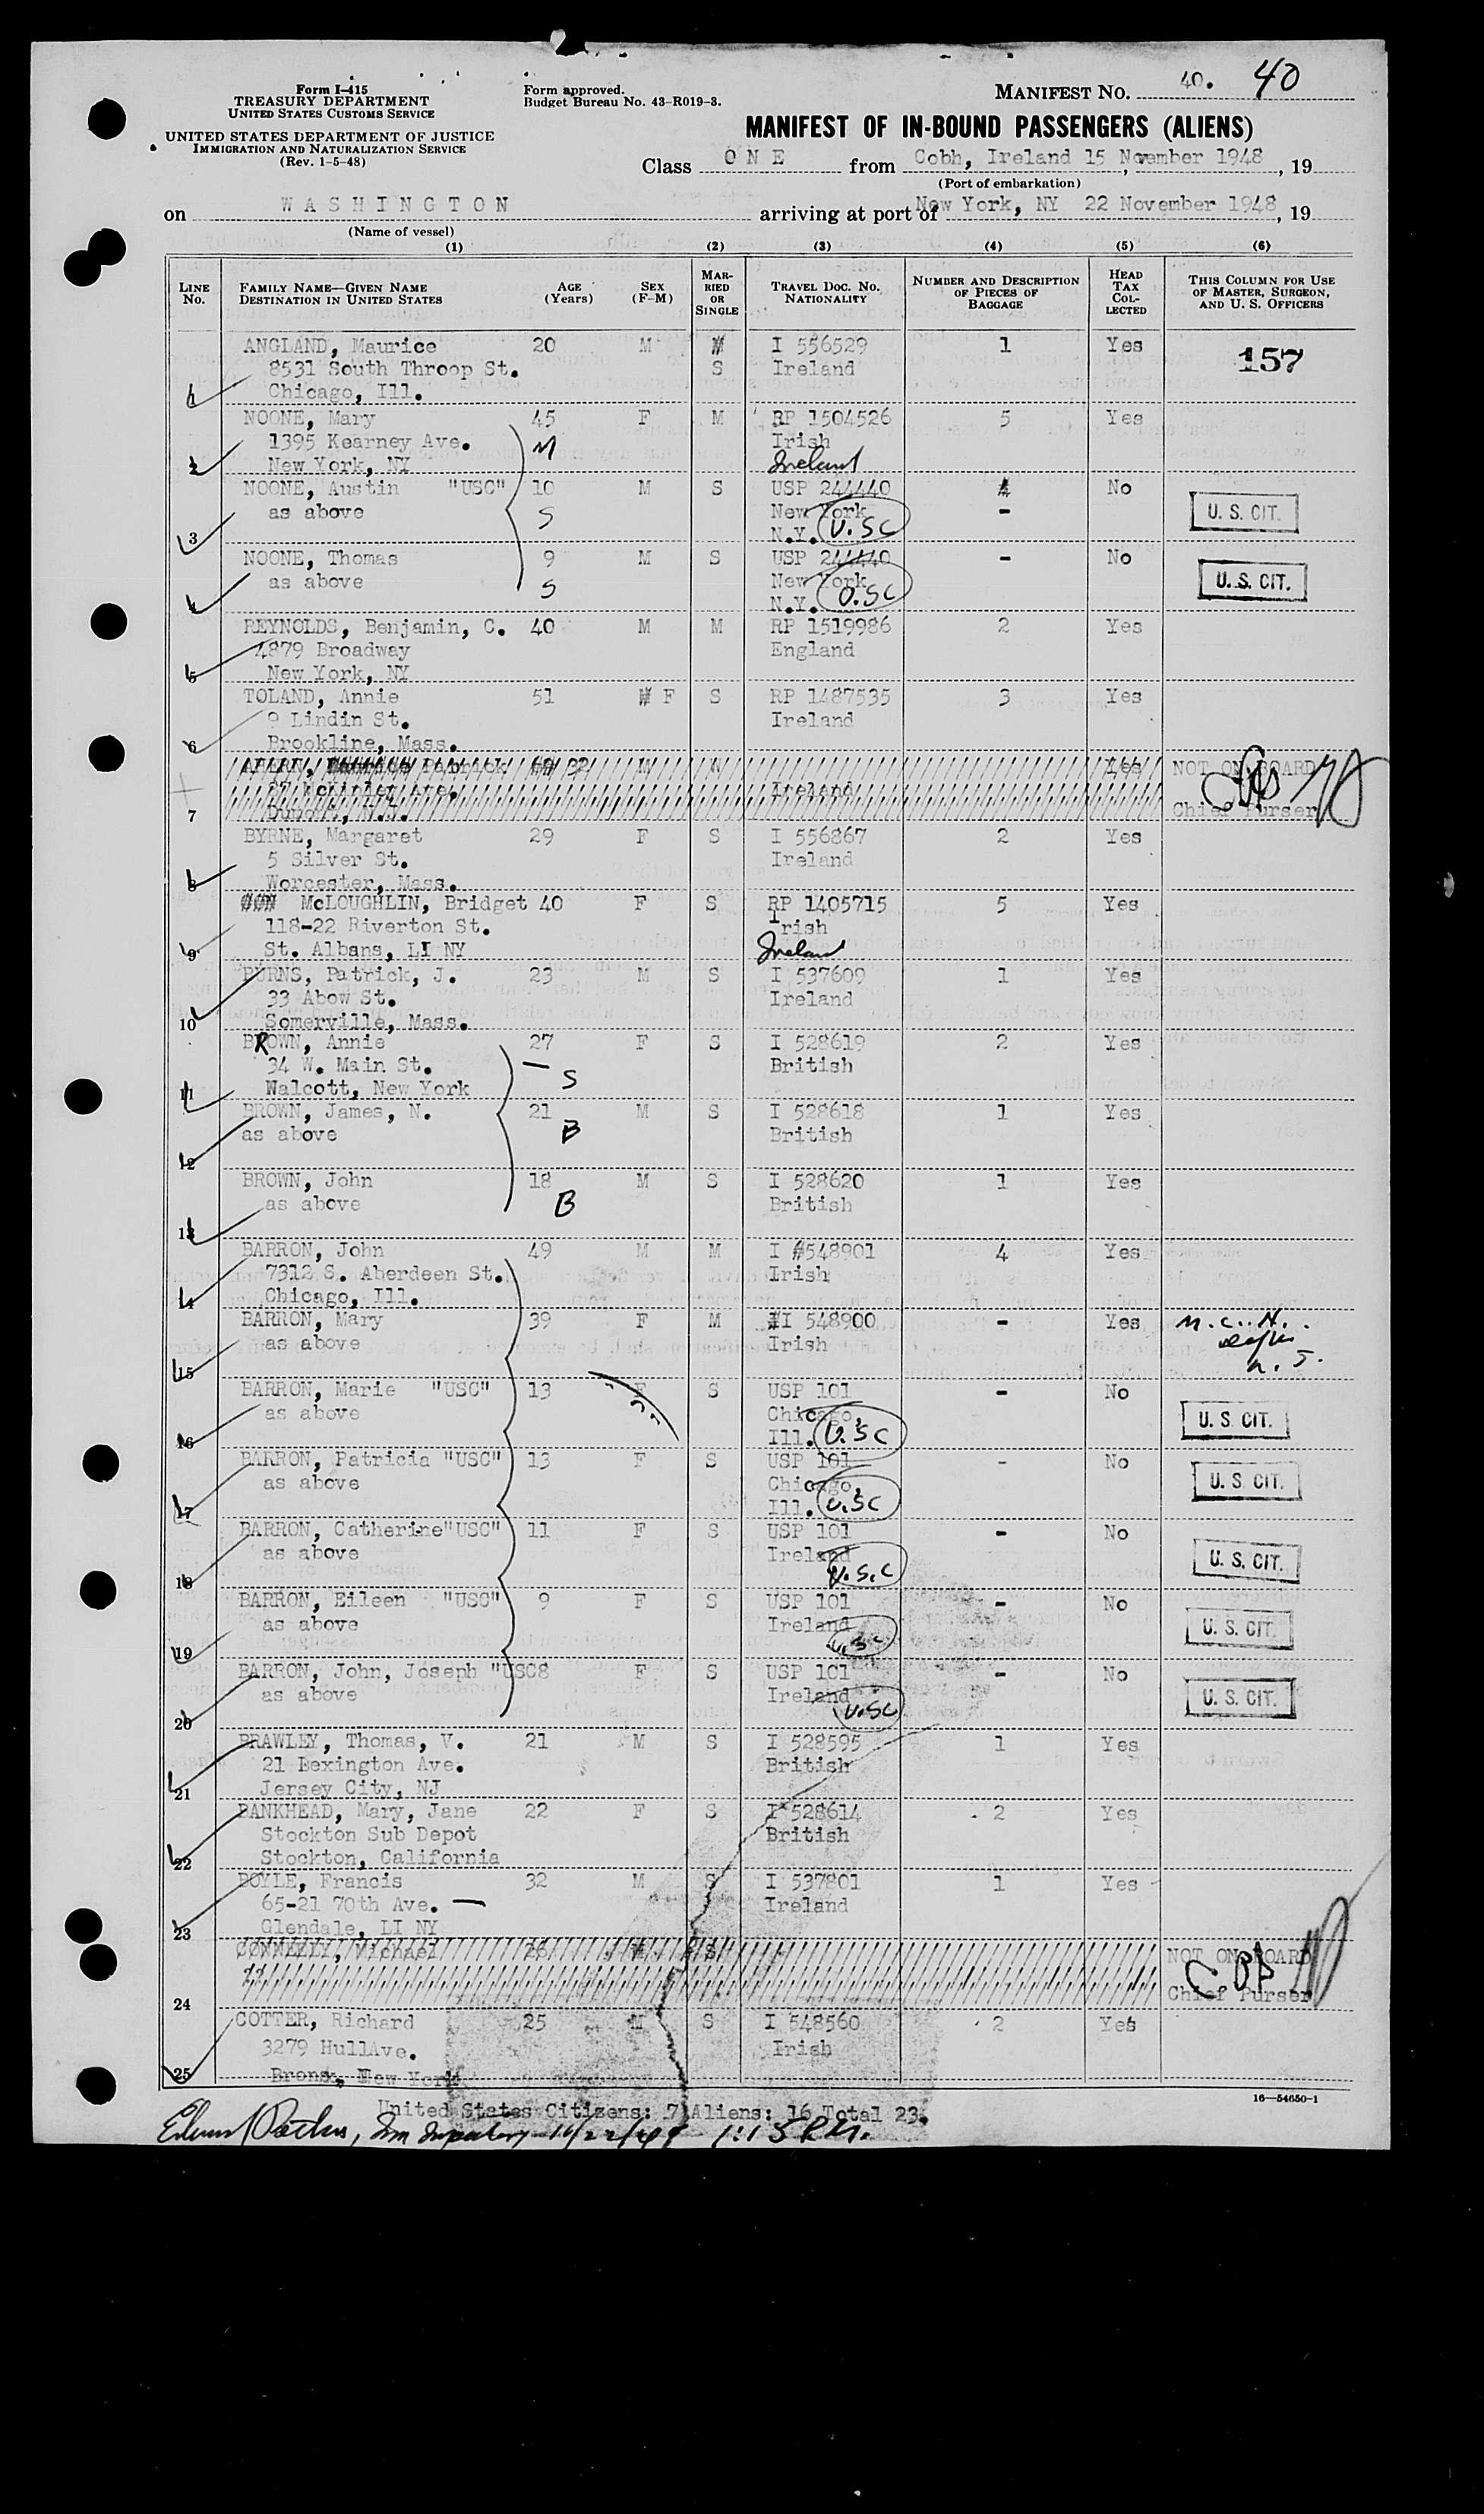 Form I-415
TREASURY DEPARTMENT
UNITED STATES CUSTOMS SERVICE
UNITED STATES DEPARTMENT OF JUSTICE
IMMIGRATION AND NATURALIZATION SERVICE
(Rev. 1-5-48)
Form approved.
Budget Bureau No. 43-R019-3.
MANIFEST NO. 40. 40
MANIFEST OF IN-BOUND PASSENGERS (ALIENS)
Class O N E from Cobh, Ireland 15 November 1948, 19
(Port of embarkation)
on W A S H I N G T O N arriving at port of New York, NY 22 November 1948, 19
(Name of vessel)
(1) (2) (3) (4) (5) (6)
LINE No. FAMILY NAME—GIVEN NAME DESTINATION IN UNITED STATES AGE (Years) SEX (F-M) MARRIED OR SINGLE TRAVEL DOC. NO. NATIONALITY NUMBER AND DESCRIPTION OF PIECES OF BAGGAGE HEAD TAX COLLECTED THIS COLUMN FOR USE OF MASTER, SURGEON, AND U. S. OFFICERS
ANGLAND, Maurice 20 M I 556529 1 Yes 157
8531 South Throop St. S Ireland
1 Chicago, Ill.
NOONE, Mary 45 F M RP 1504526 5 Yes
1395 Kearney Ave. M Irish
2 New York, NY Ireland
NOONE, Austin "USC" 10 M S USP 244440 No
as above S New York - U. S. CIT.
3 N.Y. U.SC
NOONE, Thomas 9 M S USP 244440 - No
as above S New York U. S. CIT.
4 N.Y. U.SC
REYNOLDS, Benjamin, C. 40 M M RP 1519986 2 Yes
4879 Broadway England
5 New York, NY
TOLAND, Annie 51 F S RP 1487535 3 Yes
9 Lindin St. Ireland
6 Brookline, Mass.
Patrick 32 M Yes NOT ON BOARD
McKinley Ave. Ireland
7 Chief Purser
BYRNE, Margaret 29 F S I 556867 2 Yes
5 Silver St. Ireland
8 Worcester, Mass.
McLOUGHLIN, Bridget 40 F S RP 1405715 5 Yes
118-22 Riverton St. Irish
9 St. Albans, LI NY Ireland
BURNS, Patrick, J. 23 M S I 537609 1 Yes
33 Abow St. Ireland
10 Somerville, Mass.
BROWN, Annie 27 F S I 528619 2 Yes
34 W. Main St. — S British
11 Walcott, New York
BROWN, James, N. 21 M S I 528618 1 Yes
as above B British
12
BROWN, John 18 M S I 528620 1 Yes
as above B British
13
BARRON, John 49 M M I 548901 4 Yes
7312 S. Aberdeen St. Irish
14 Chicago, Ill.
BARRON, Mary 39 F M I 548900 - Yes
as above Irish
15
BARRON, Marie "USC" 13 F S USP 101 - No
as above Chicago, U. S. CIT.
16 Ill. U.SC
BARRON, Patricia "USC" 13 F S USP 101 - No
as above Chicago, U. S. CIT.
17 Ill. U.SC
BARRON, Catherine"USC" 11 F S USP 101 - No
as above Ireland U. S. CIT.
18 U.S.C
BARRON, Eileen "USC" 9 F S USP 101 - No
as above Ireland U. S. CIT.
19 U.SC
BARRON, John, Joseph "USC8 F S USP 101 - No
as above Ireland U. S. CIT.
20 U.SC
BRAWLEY, Thomas, V. 21 M S I 528595 1 Yes
21 Lexington Ave. British
21 Jersey City, NJ
BANKHEAD, Mary, Jane 22 F S I 528614 2 Yes
Stockton Sub Depot British
22 Stockton, California
BOYLE, Francis 32 M S I 537801 1 Yes
65-21 70th Ave. — Ireland
23 Glendale, LI NY
CONNEELY, Michael 26 M S NOT ON BOARD
24 Chief Purser
COTTER, Richard 25 M S I 548560 2 Yes
3279 HullAve. Irish
25 Bronx, New York
16—54650-1
United States Citizens: 7 Aliens: 16 Total 23.
11/22/48 1:15 PM.